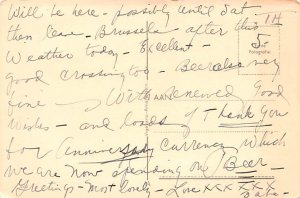 Will be here - possibly until Sat
then leave - Brussels after this
Weather today - Excellent -
good crossing too - Beer also very
fine - With renewed Good
Wishes - and loads of Thank You
for anniversary currency which
we are now spending on Beer -
Greetings - Most lovely - Love XXX XXX
Babs -